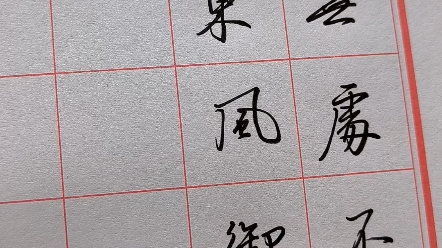 無處不
東風御